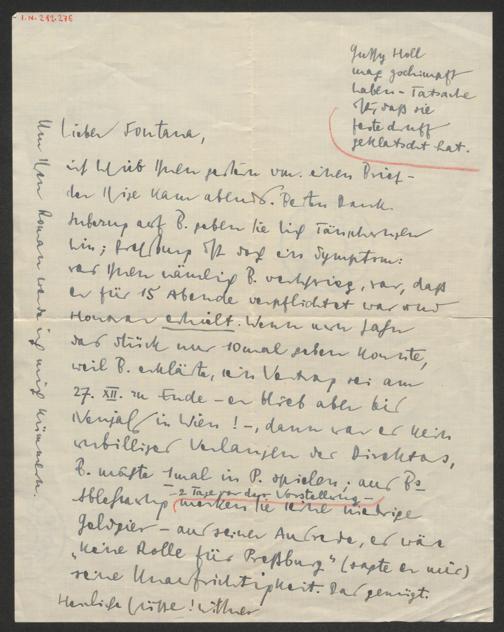 I.N. 212.276
Gussy Holl
mag geschimpft
haben – Tatsache
ist, daß sie
feste druff
geklatscht hat.
Lieber Fontana,
ich schrieb Ihnen gestern vm. einen Brief –
der Ihrige kam abends. Besten Dank.
Inbezug auf B. geben Sie sich Täuschungen
hin; Preßburg ist doch ein Symptom:
was Ihnen nämlich B. verschwieg, war, daß
er für 15 Abende verpflichtet war und
Honorar erhielt. Wenn nun Jahn
das Stück nur 10mal geben konnte,
weil B. erklärte, sein Vertrag sei am
27. XII. zu Ende – er blieb aber bis
Neujahr in Wien! –, dann war es kein
unbilliges Verlangen des Direktors,
B. müßte 1mal in P. spielen; aus B
Ablehnung
– 2 Tage vor der Vorstellung –
merken Sie seine niedrige
Geldgier – aus seiner Ausrede, er wäre
„keine Rolle für Preßburg" (sagte er mir)
seine Unaufrichtigkeit. Das genügt.
Herzliche Grüße!
Um Ihren Roman werde ich mich kümmern.